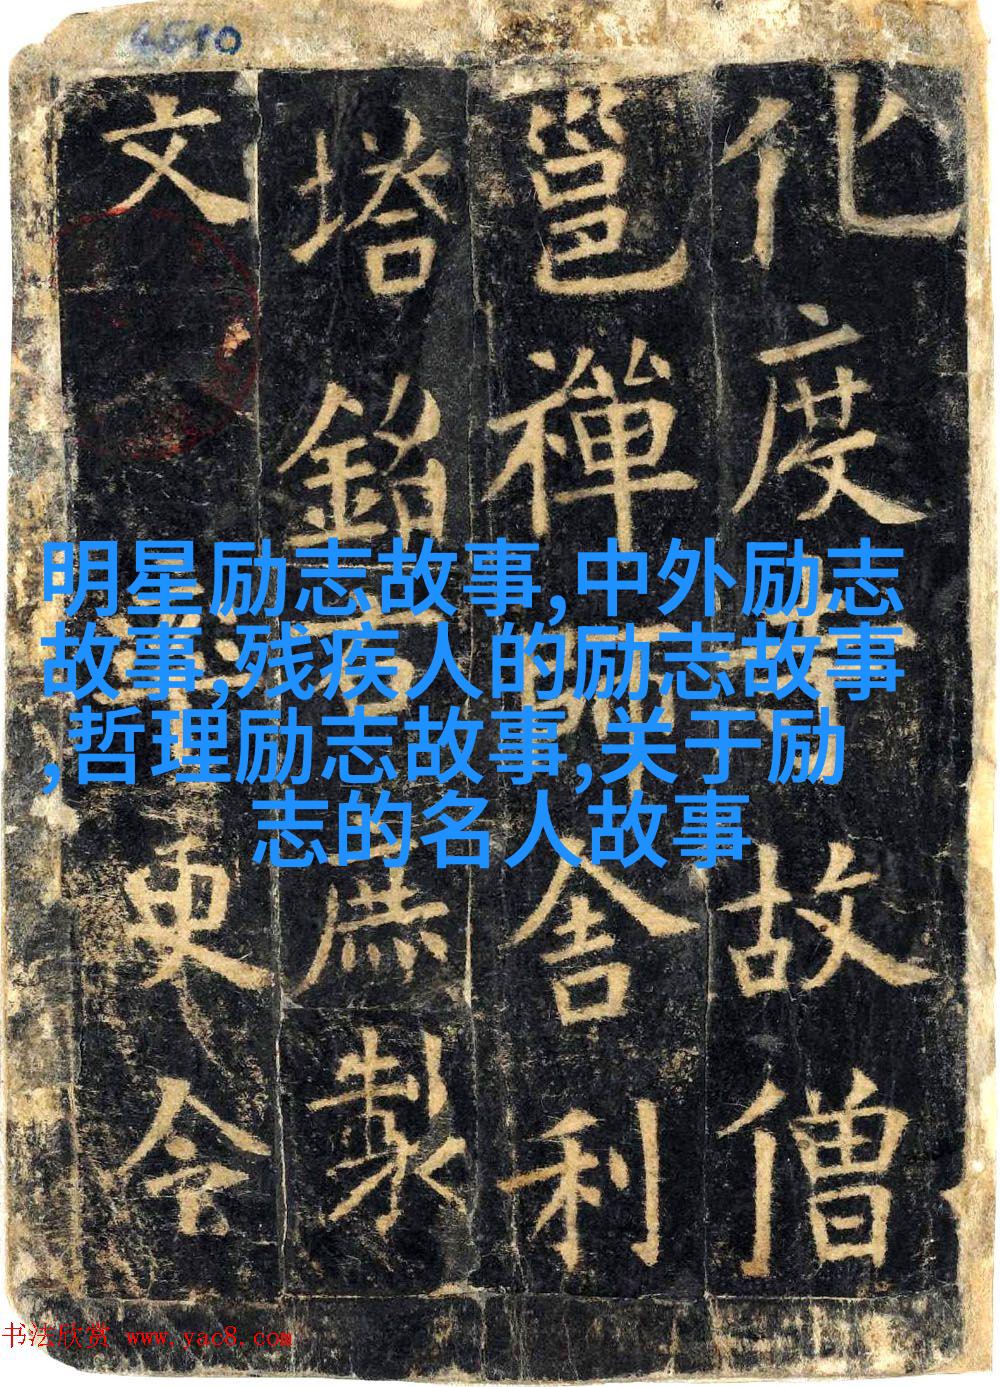 4510
化度故僧
邕禪舍利
塔銘製
文更令
明星励志故事,中外励志
故事,残疾人的励志故事
,哲理励志故事,关于励
志的名人故事
书法欣赏 www.yac8.com